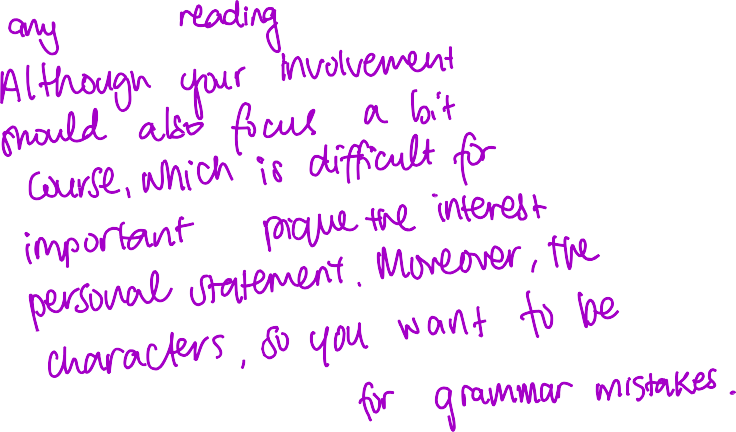 any reading
Although your involvement
should also focus a bit
course, which is difficult for
important pique the interest
personal statement. Moreover, the
characters, so you want to be
for grammar mistakes.